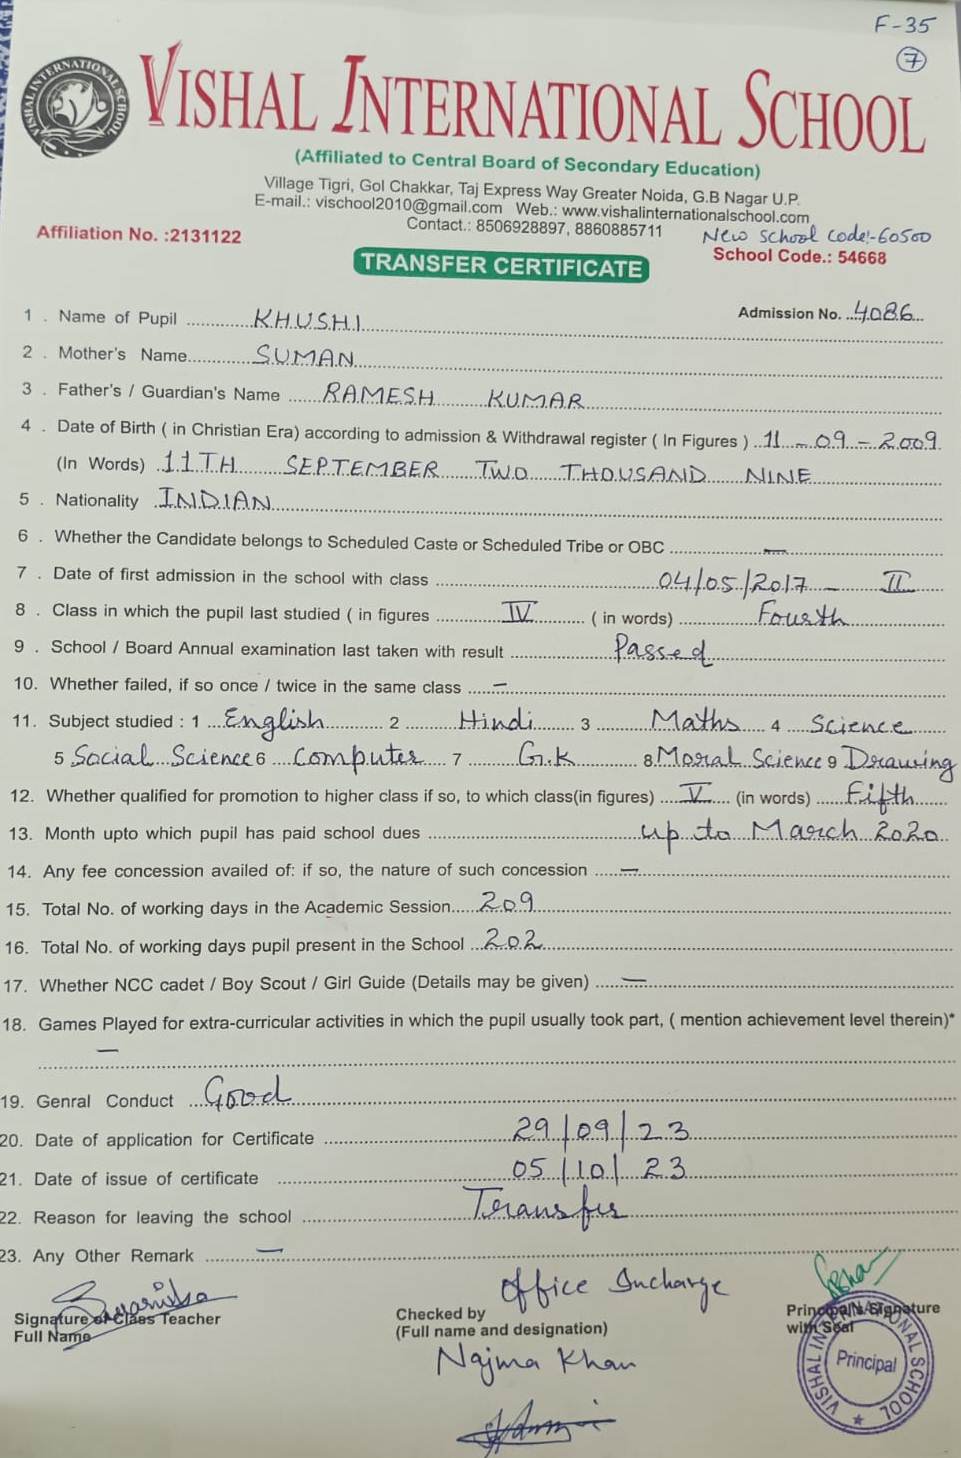 F-35
7
VISHAL INTERNATIONAL SCHOOL
VISHAL INTERNATIONAL SCHOOL
(Affiliated to Central Board of Secondary Education)
Village Tigri, Gol Chakkar, Taj Express Way Greater Noida, G.B Nagar U.P.
E-mail.: vischool2010@gmail.com Web.: www.vishalinternationalschool.com
Contact.: 8506928897, 8860885711
New School Code:-60500
Affiliation No. :2131122 School Code.: 54668
TRANSFER CERTIFICATE
Admission No. 4086
1 . Name of Pupil KHUSHI
2 . Mother's Name SUMAN
3 . Father's / Guardian's Name RAMESH KUMAR
4 . Date of Birth ( in Christian Era) according to admission & Withdrawal register ( In Figures ) 11-09-2009
(In Words) 11TH SEPTEMBER TWO THOUSAND NINE
5 . Nationality INDIAN
6 . Whether the Candidate belongs to Scheduled Caste or Scheduled Tribe or OBC —
7 . Date of first admission in the school with class 04/05/2017 — II
8 . Class in which the pupil last studied ( in figures IV ( in words) Fourth
9 . School / Board Annual examination last taken with result Passed
10. Whether failed, if so once / twice in the same class —
11. Subject studied : 1 English 2 Hindi 3 Maths 4 Science
5 Social Science 6 Computer 7 G.K 8 Moral Science 9 Drawing
12. Whether qualified for promotion to higher class if so, to which class(in figures) V (in words) Fifth
13. Month upto which pupil has paid school dues up to March 2020
14. Any fee concession availed of: if so, the nature of such concession —
15. Total No. of working days in the Academic Session 209
16. Total No. of working days pupil present in the School 202
17. Whether NCC cadet / Boy Scout / Girl Guide (Details may be given) —
18. Games Played for extra-curricular activities in which the pupil usually took part, ( mention achievement level therein)*
—
19. Genral Conduct Good
20. Date of application for Certificate 29/09/23
21. Date of issue of certificate 05/10/23
22. Reason for leaving the school Transfer
23. Any Other Remark —
Office Incharge
Signature of Class Teacher
Full Name
Checked by
(Full name and designation)
Najma Khan
Principal's Signature
with Seal
VISHAL INTERNATIONAL SCHOOL
Principal